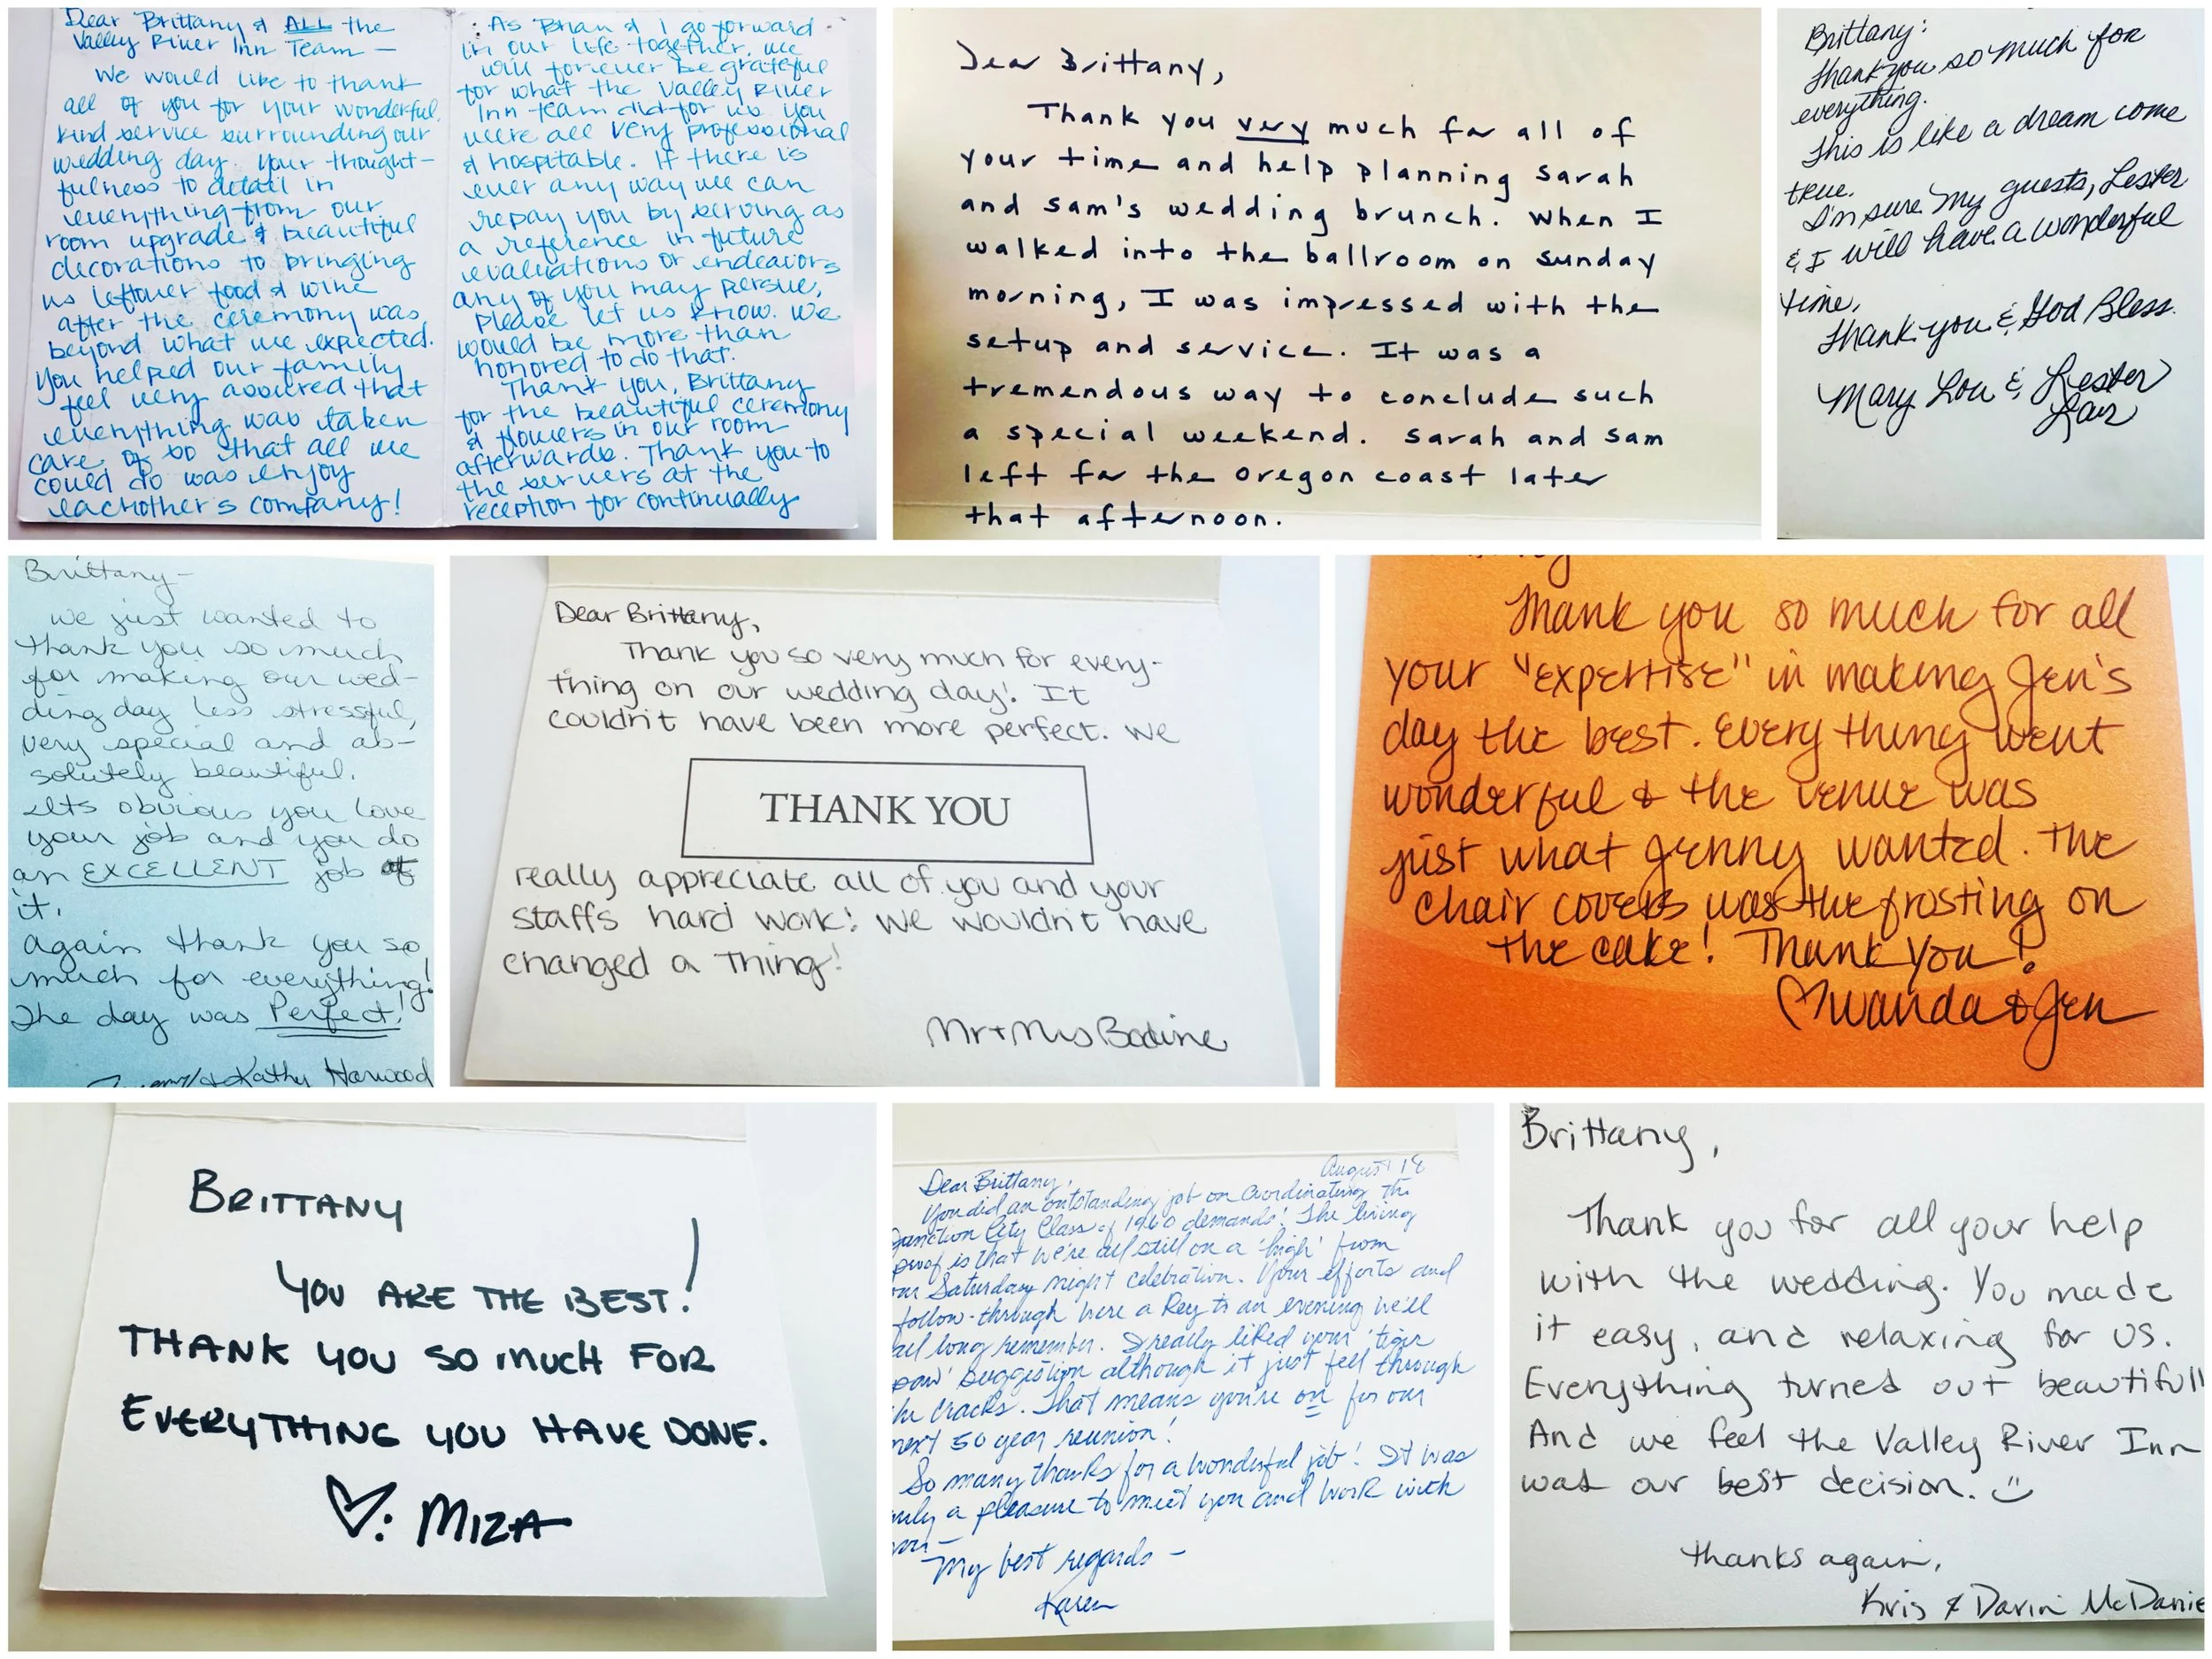 Dear Brittany & ALL the
Valley River Inn Team —
We would like to thank
all of you for your wonderful,
kind service surrounding our
wedding day. Your thought-
fulness to detail in
everything from our
room upgrade & beautiful
decorations to bringing
us leftover food & wine
after the ceremony was
beyond what we expected.
You helped our family
feel very assured that
everything was taken
care of so that all we
could do was enjoy
eachother's company!
As Brian & I go forward
in our life together, we
will forever be grateful
for what the Valley River
Inn team did for us. You
were all very professional
& hospitable. If there is
ever any way we can
repay you by serving as
a reference in future
evaluations or endeavors
any of you may persue,
please let us know. We
would be more than
honored to do that.
Thank you, Brittany
for the beautiful ceremony
& flowers in our room
afterwards. Thank you to
the servers at the
reception for continually
Dear Brittany,
Thank you very much for all of
your time and help planning Sarah
and Sam's wedding brunch. When I
walked into the ballroom on Sunday
morning, I was impressed with the
setup and service. It was a
tremendous way to conclude such
a special weekend. Sarah and Sam
left for the Oregon coast later
that afternoon.
Brittany:
Thank you so much for
everything.
This is like a dream come
true.
I'm sure my guests, Lester
& I will have a wonderful
time.
Thank you & God Bless.
Mary Lou & Lester
Lair
Brittany-
We just wanted to
thank you so much
for making our wed-
ding day less stressful,
very special and ab-
solutely beautiful.
Its obvious you love
your job and you do
an EXCELLENT job at
it.
Again thank you so
much for everything!
The day was Perfect!
& Kathy Harwood
Dear Brittany,
Thank you so very much for every-
thing on our wedding day! It
couldn't have been more perfect. We
THANK YOU
really appreciate all of you and your
staffs hard work! We wouldn't have
changed a thing!
Mr + Mrs Bodine
Thank you so much for all
your "expertise" in making Jen's
day the best. Everything went
wonderful & the venue was
just what Jenny wanted. The
chair covers was the frosting on
the cake! Thank you!
♡ Wanda & Jen
BRITTANY
YOU ARE THE BEST!
THANK YOU SO MUCH FOR
EVERYTHING YOU HAVE DONE.
♡: MIZA
August 18
Dear Brittany,
You did an outstanding job on coordinating the
Junction City Class of 1960 demands! The living
proof is that we're all still on a 'high' from
our Saturday night celebration. Your efforts and
follow-through were a key to an evening we'll
all long remember. I really liked your 'tiger
paw' suggestion although it just fell through
the cracks. That means you're on for our
next 50 year reunion!
So many thanks for a wonderful job! It was
truly a pleasure to meet you and work with
you—
My best regards —
Karen
Brittany,
Thank you for all your help
with the wedding. You made
it easy, and relaxing for us.
Everything turned out beautifull
And we feel the Valley River Inn
was our best decision. ☺
thanks again,
Kris & Darin McDanie